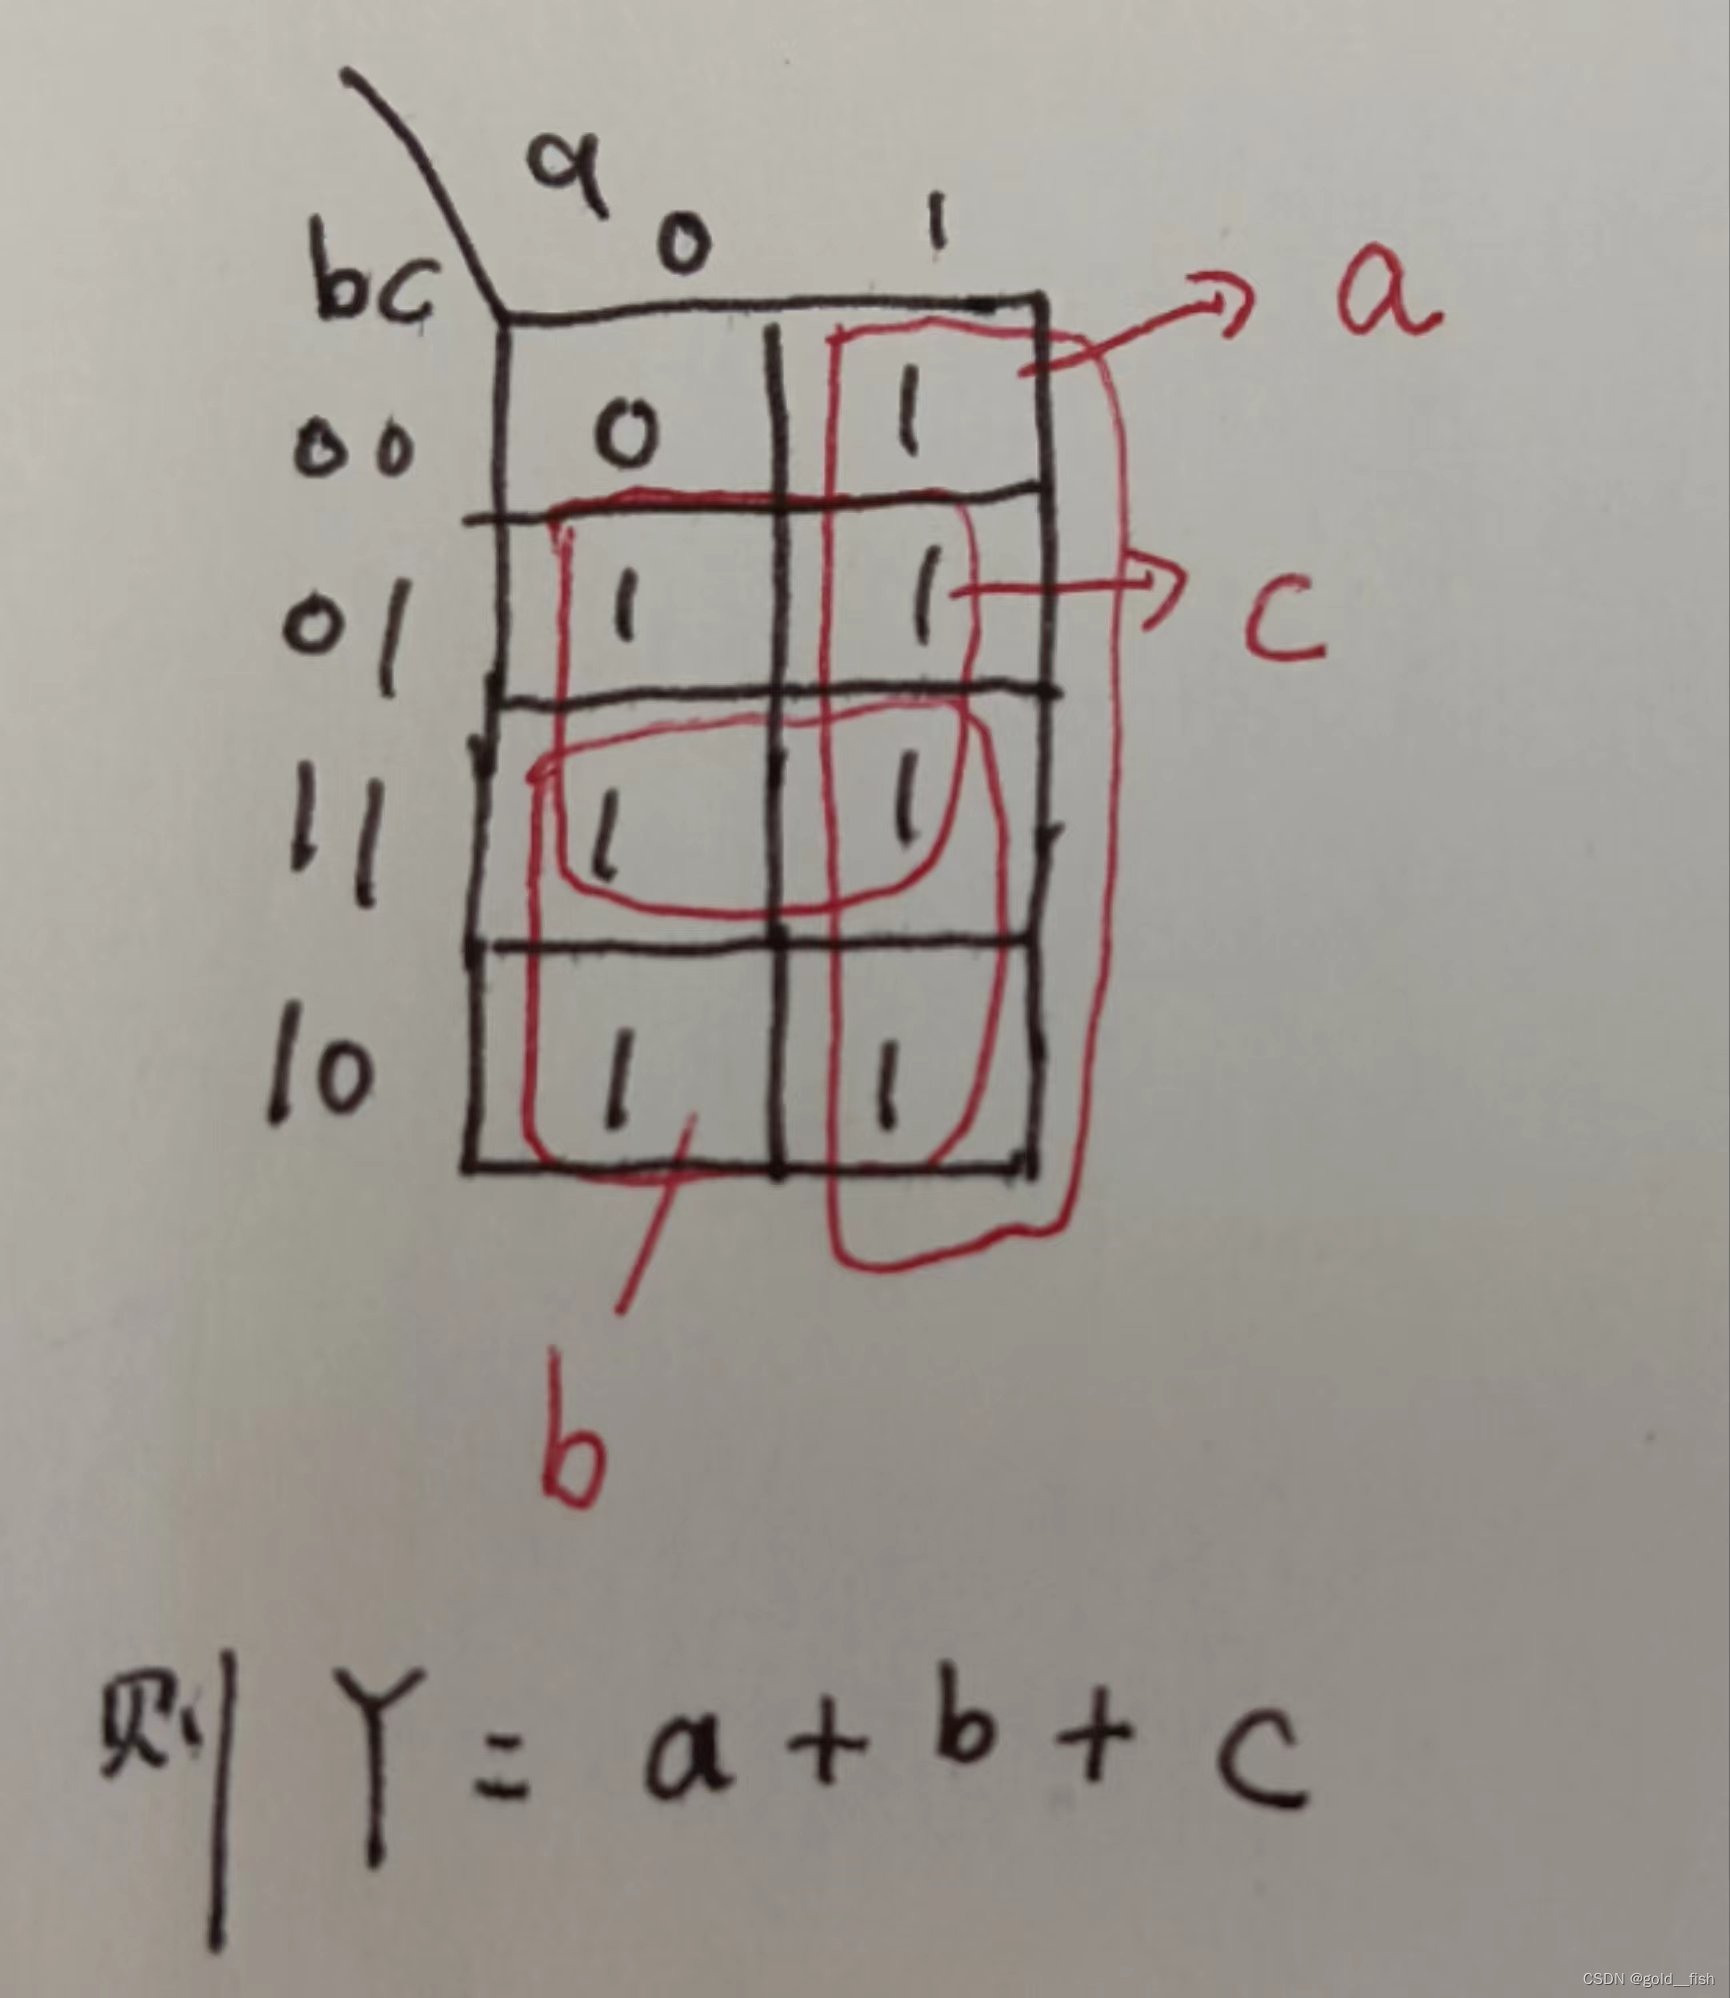 a
0 1
bc
a
00 0 1
01 1 1
c
11 1 1
10 1 1
b
则 Y = a + b + c
CSDN @gold__fish